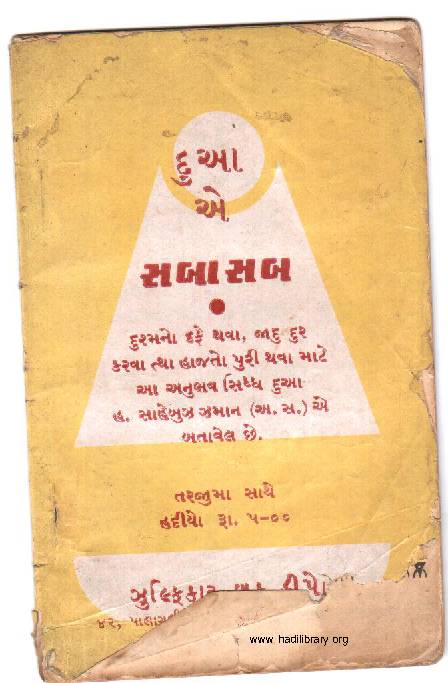 દુઆ
એ
સબાસબ
દુશ્મનો દફે થવા, જાદુ દુર
કરવા ત્થા હાજતો પુરી થવા માટે
આ અનુભવ સિધ્ધ દુઆ
હ. સાહેબુઝ ઝમાન (અ. સ.) એ
બતાવેલ છે.
તરજુમા સાથે
હદીયો રૂા. ૫-૦૦
ઝુલ્ફિકાર બુક ડીપો
૪૨,
www.hadilibrary.org